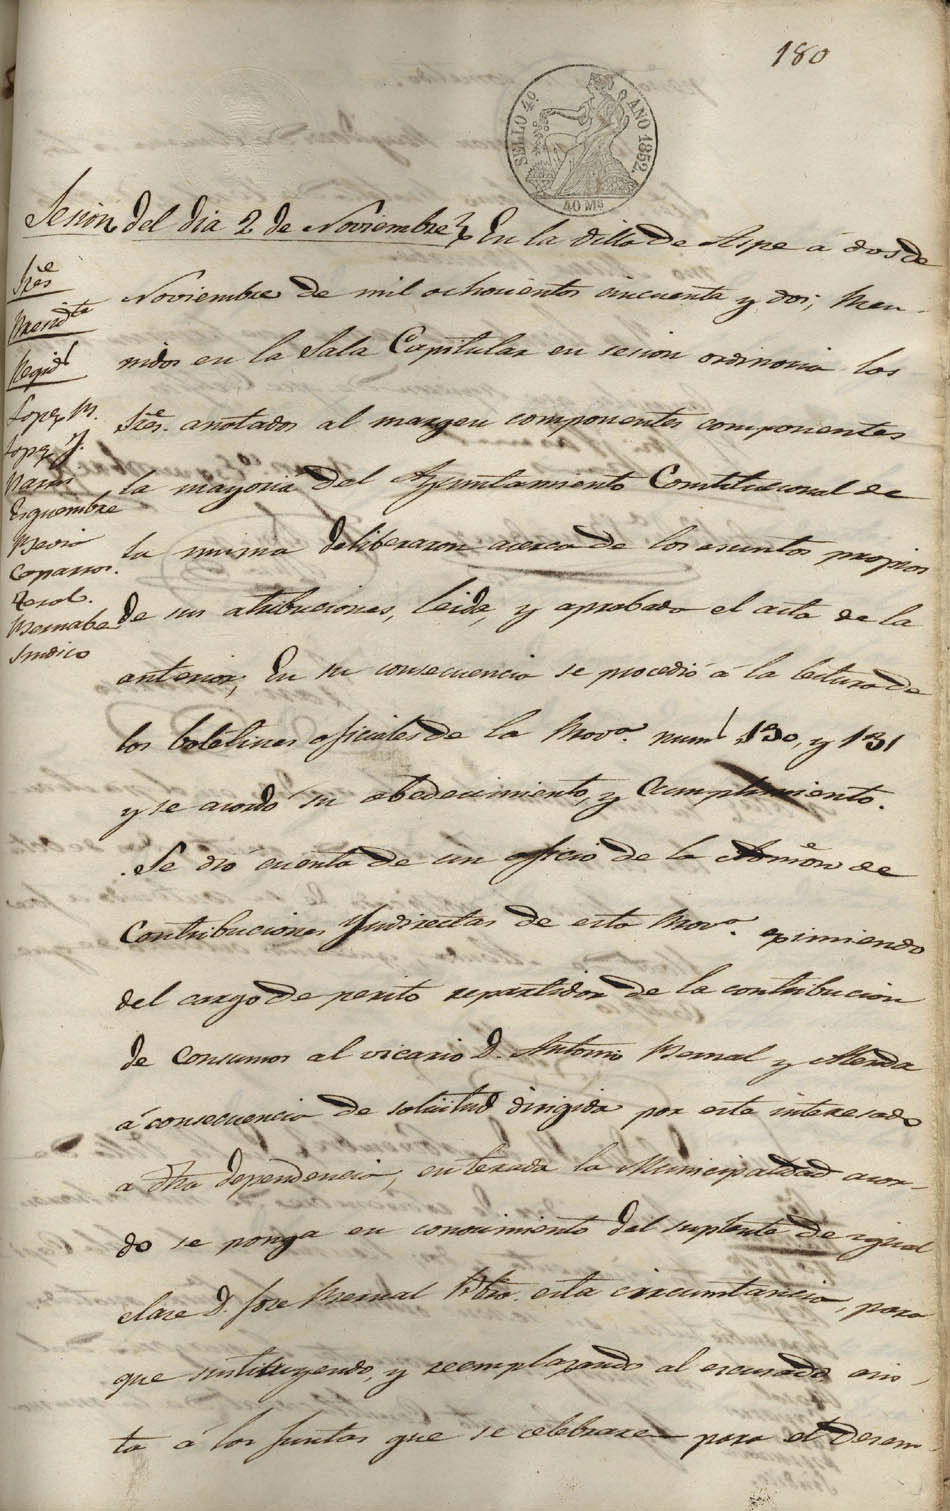 180
SELLO 4º AÑO 1852.
40 Ms
Sesion del dia 2 de Noviembre
En la Villa de Aspe a dos de
Sres
Presidte
Regidl
Lopez M.
Lopez J.
Pavia
Esquembre
Caparros.
Terol.
Bernabe
Sindico
Noviembre de mil ochocientos cincuenta y dos; Reu-
nidos en la Sala Capitular en sesion ordinaria los
Sres. anotados al margen componentes componentes
la mayoria del Ayuntamiento Constitucional de
la misma deliberaron acerca de los asuntos propios
de sus atribuciones, leida, y aprobada el acta de la
anterior; En su consecuencia se procedió á la lectura de
los boletines oficiales de la Prova. numl 130, y 131
y se acordó su obedecimiento, y Cumplimiento.
Se dió cuenta de un oficio de la Admon de
Contribuciones Yndirectas de esta Prova. eximiendo
del cargo de perito repartidor de la contribucion
de Consumos al vicario D. Antonio Bernal y Alenda
á consecuencia de solicitud dirigida por este interesado
a dha dependencia, enterada la Municipalidad acor-
do se ponga en conocimiento del suplente de igual
clase D. Jose Bernal Pbro. esta circunstancia, para
que sustituyendo, y reemplazando al escusado, asis-
ta á las Juntas que se celebraren para el desem-